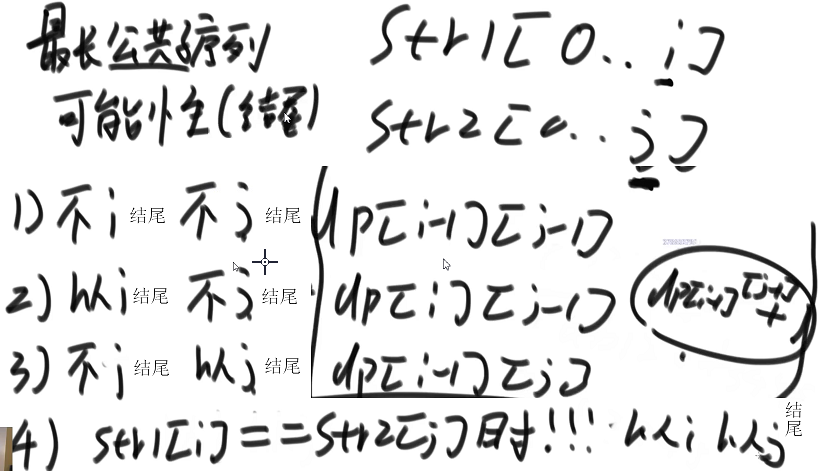 最长公共子序列
可能性(结尾)
str1[0..i]
str2[0..j]
1) 不i结尾 不j结尾 dp[i-1][j-1]
2) 以i结尾 不j结尾 dp[i][j-1]
3) 不i结尾 以j结尾 dp[i-1][j]
dp[i-1][j-1]+1
4) str1[i]==str2[j]时!!! 以i 以j结尾